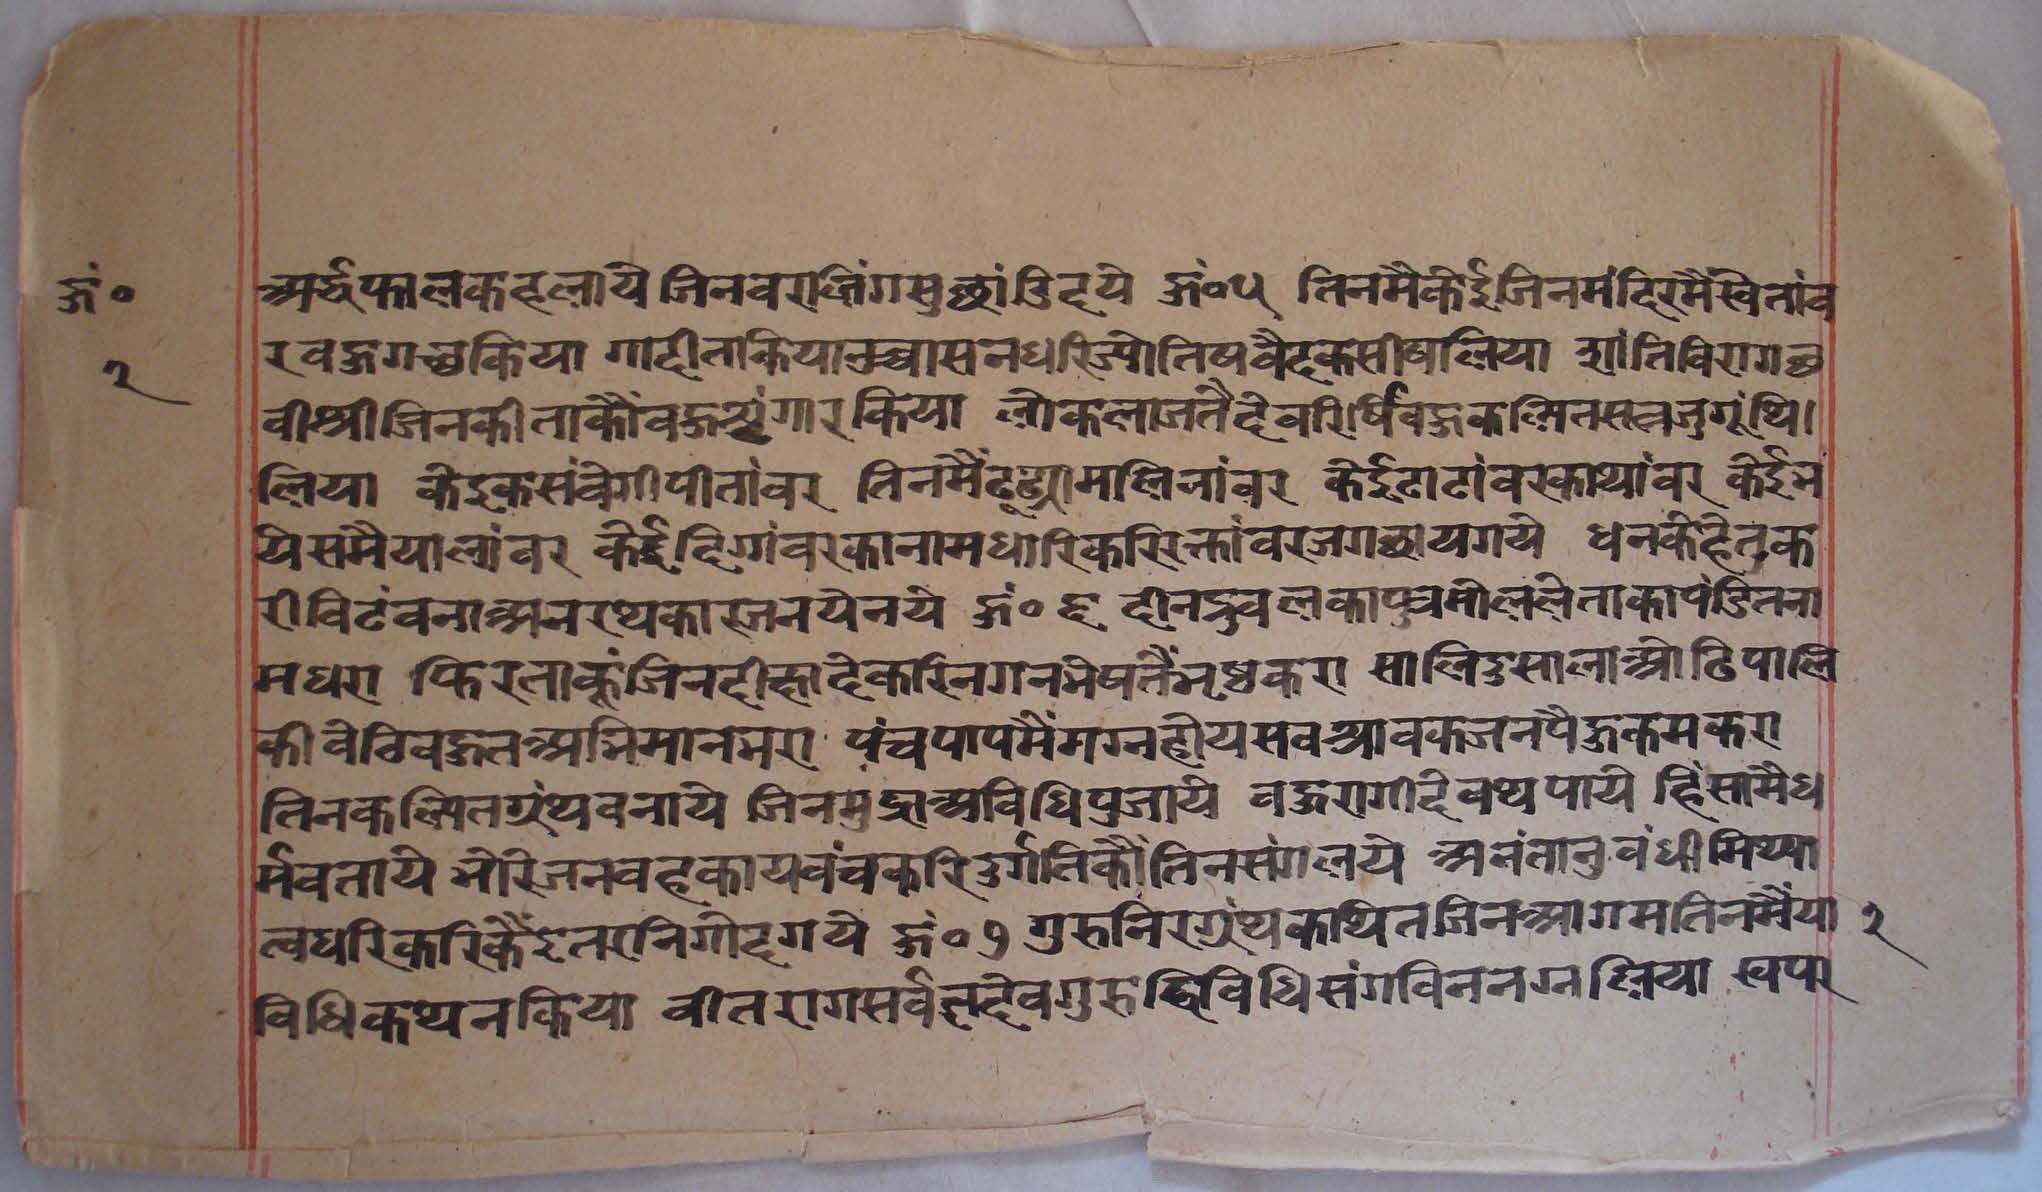 हुं॰
२
अर्द्धफालक हलाये जिनवरलिंग सु छांडि दये हुं॰५ तिनमै केई जिनमंदिरमैं स्वेतांव
र वहु गछ किया गादीतकिया उच्चासन धरि ज्योतिष वैदक सीष लिया शांति विराग छ
वी श्रीजिनकी ताकौं वहु शृंगार किया लोकलाजतै देवरिर्षि वहु कल्पित सूत्र जु गूंथि
लिया केइक संवेगी पीतांवर तिनमैं ढूंढ्या मलिनांवर केई टाटांवर काथांवर केई भ
ये समैयालांवर केई दिगांवर का नाम धारि करि रक्तांवर जग छाय गये धन के हेतु क
री विटंवना अनरथ कारज नये नये हुं॰ ६ दीन दुवल का पुत्र मोल ले ताका पंडित ना
म धरा फिर ताकूं जिनदीक्षा दे करि नगन भेष तैं भृष्ट करा सालि दुसाला ओढि पालि
की वेठि वहुत अभिमान भरा पंच पाप मैं मग्न होय सव श्रावक जन पै हुकम करा
तिन कल्पित ग्रंथ वनाये जिनमुद्रा अविधि पुजाये वहु रागी देव थपाये हिंसा मै ध
र्म वताये भोरे जन वहकाय वंच करि दुर्गति कौं तिन संग लये अनंतानुवंधी मिथ्या
त्व धरि करि कैं इतर निगोद गये हुं॰७ गुरु निरग्रंथ कथित जिन आगम तिन मैं या
२
विधि कथन किया वीतराग सर्वज्ञ देव गुरु द्विविधि संग विन नग्न लिया स्वपर